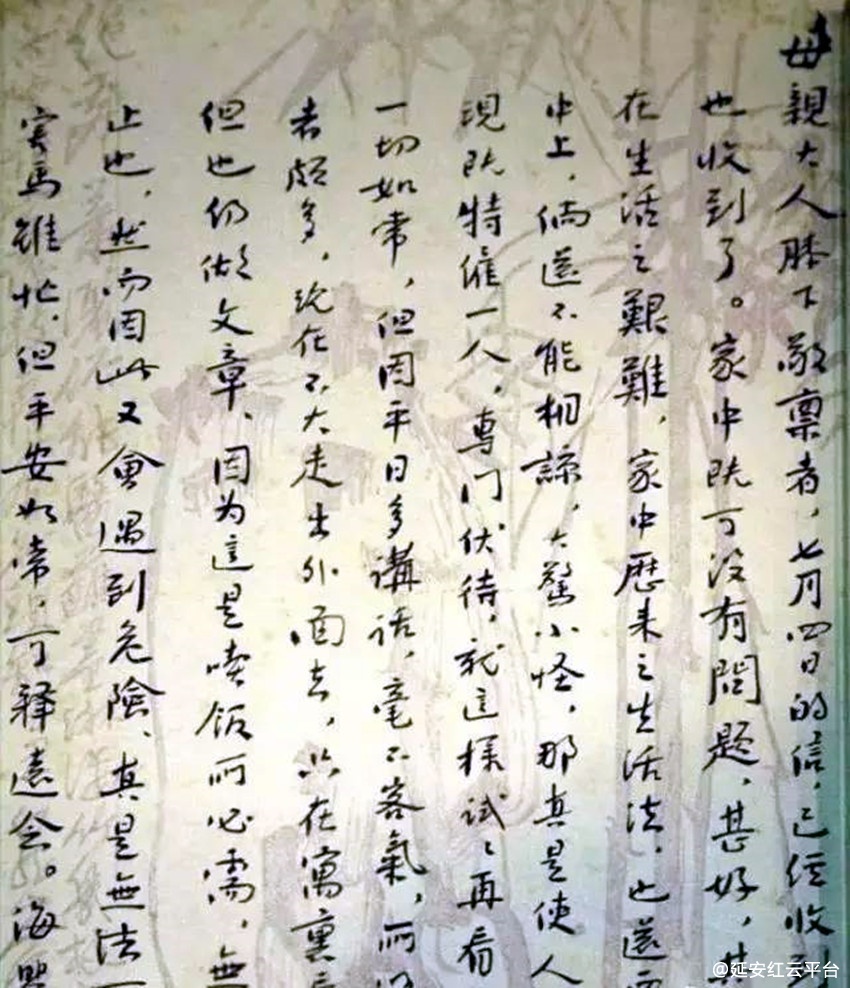 母親大人膝下敬稟者，七月四日的信，已經收到
也收到了。家中既可没有問題，甚好，其
在生活之艱難，家中歷来之生活法，也還要
中上，倘還不能相諒，大驚小怪，那真是使人
現既特僱一人，專门伏待，就這樣試〻再看
一切如常，但因平日多講話，毫不客氣，所以
者頗多，現在不大走出外面去，只在寓裏看
但也仍做文章，因为這是喫飯所必需，無
止也，然而因此又會遇到危險，真是無法
害馬雖忙，但平安如常，可釋遠念。海嬰
@延安红云平台